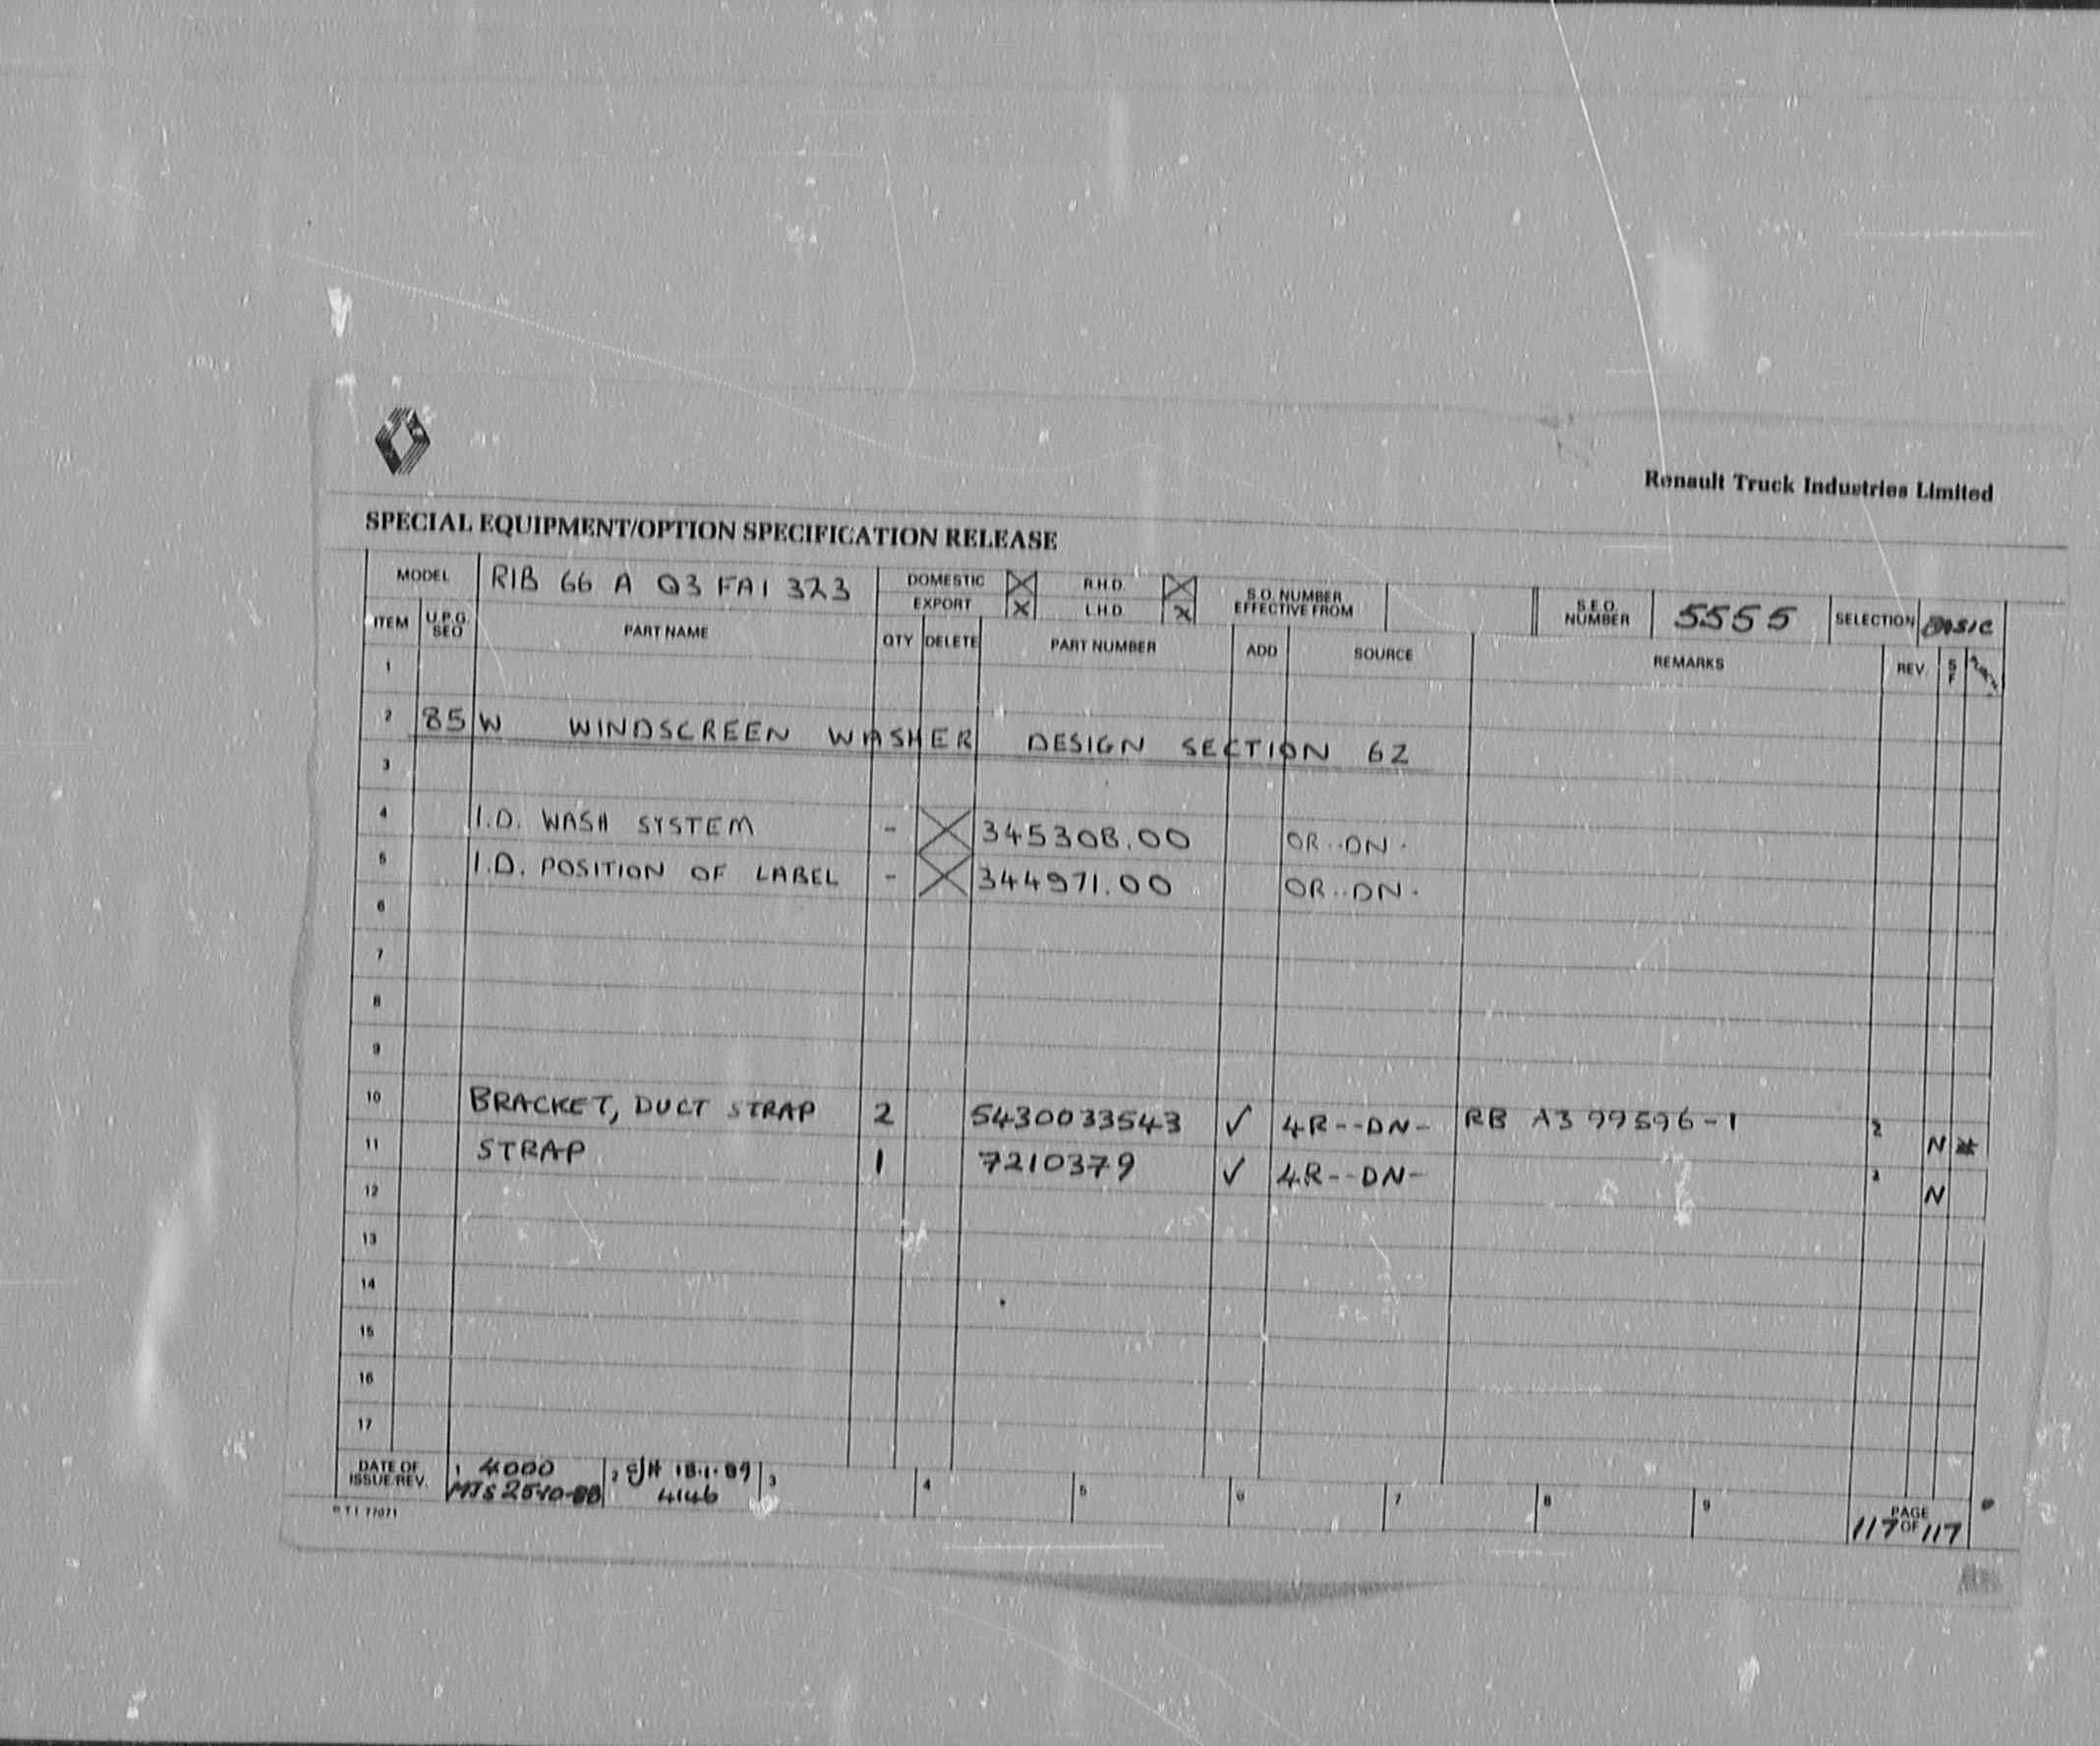 Renault Truck Industries Limited
SPECIAL EQUIPMENT/OPTION SPECIFICATION RELEASE
MODEL R1B 66 A Q3 FA1 323 DOMESTIC X R.H.D. X S.O. NUMBER EFFECTIVE FROM S.E.O. NUMBER 5555 SELECTION BASIC
EXPORT X L.H.D. X
ITEM U.P.G SEQ PART NAME QTY DELETE PART NUMBER ADD SOURCE REMARKS REV. S F
1
2 85 W WINDSCREEN WASHER DESIGN SECTION 62
3
4 I.D. WASH SYSTEM - X 345308.00 OR--DN-
5 I.D. POSITION OF LABEL - X 344971.00 OR--DN-
6
7
8
9
10 BRACKET, DUCT STRAP 2 5430033543 ✓ 4R--DN- RB A3 99596-1 2 N *
11 STRAP 1 7210379 ✓ 4R--DN- N
12
13
14
15
16
17
DATE OF ISSUE/REV. 1 4000 2 18.1.89 3 4 5 6 7 8 9 PAGE 117 OF 117
MJS 25-10-88 4146
R T I 77071